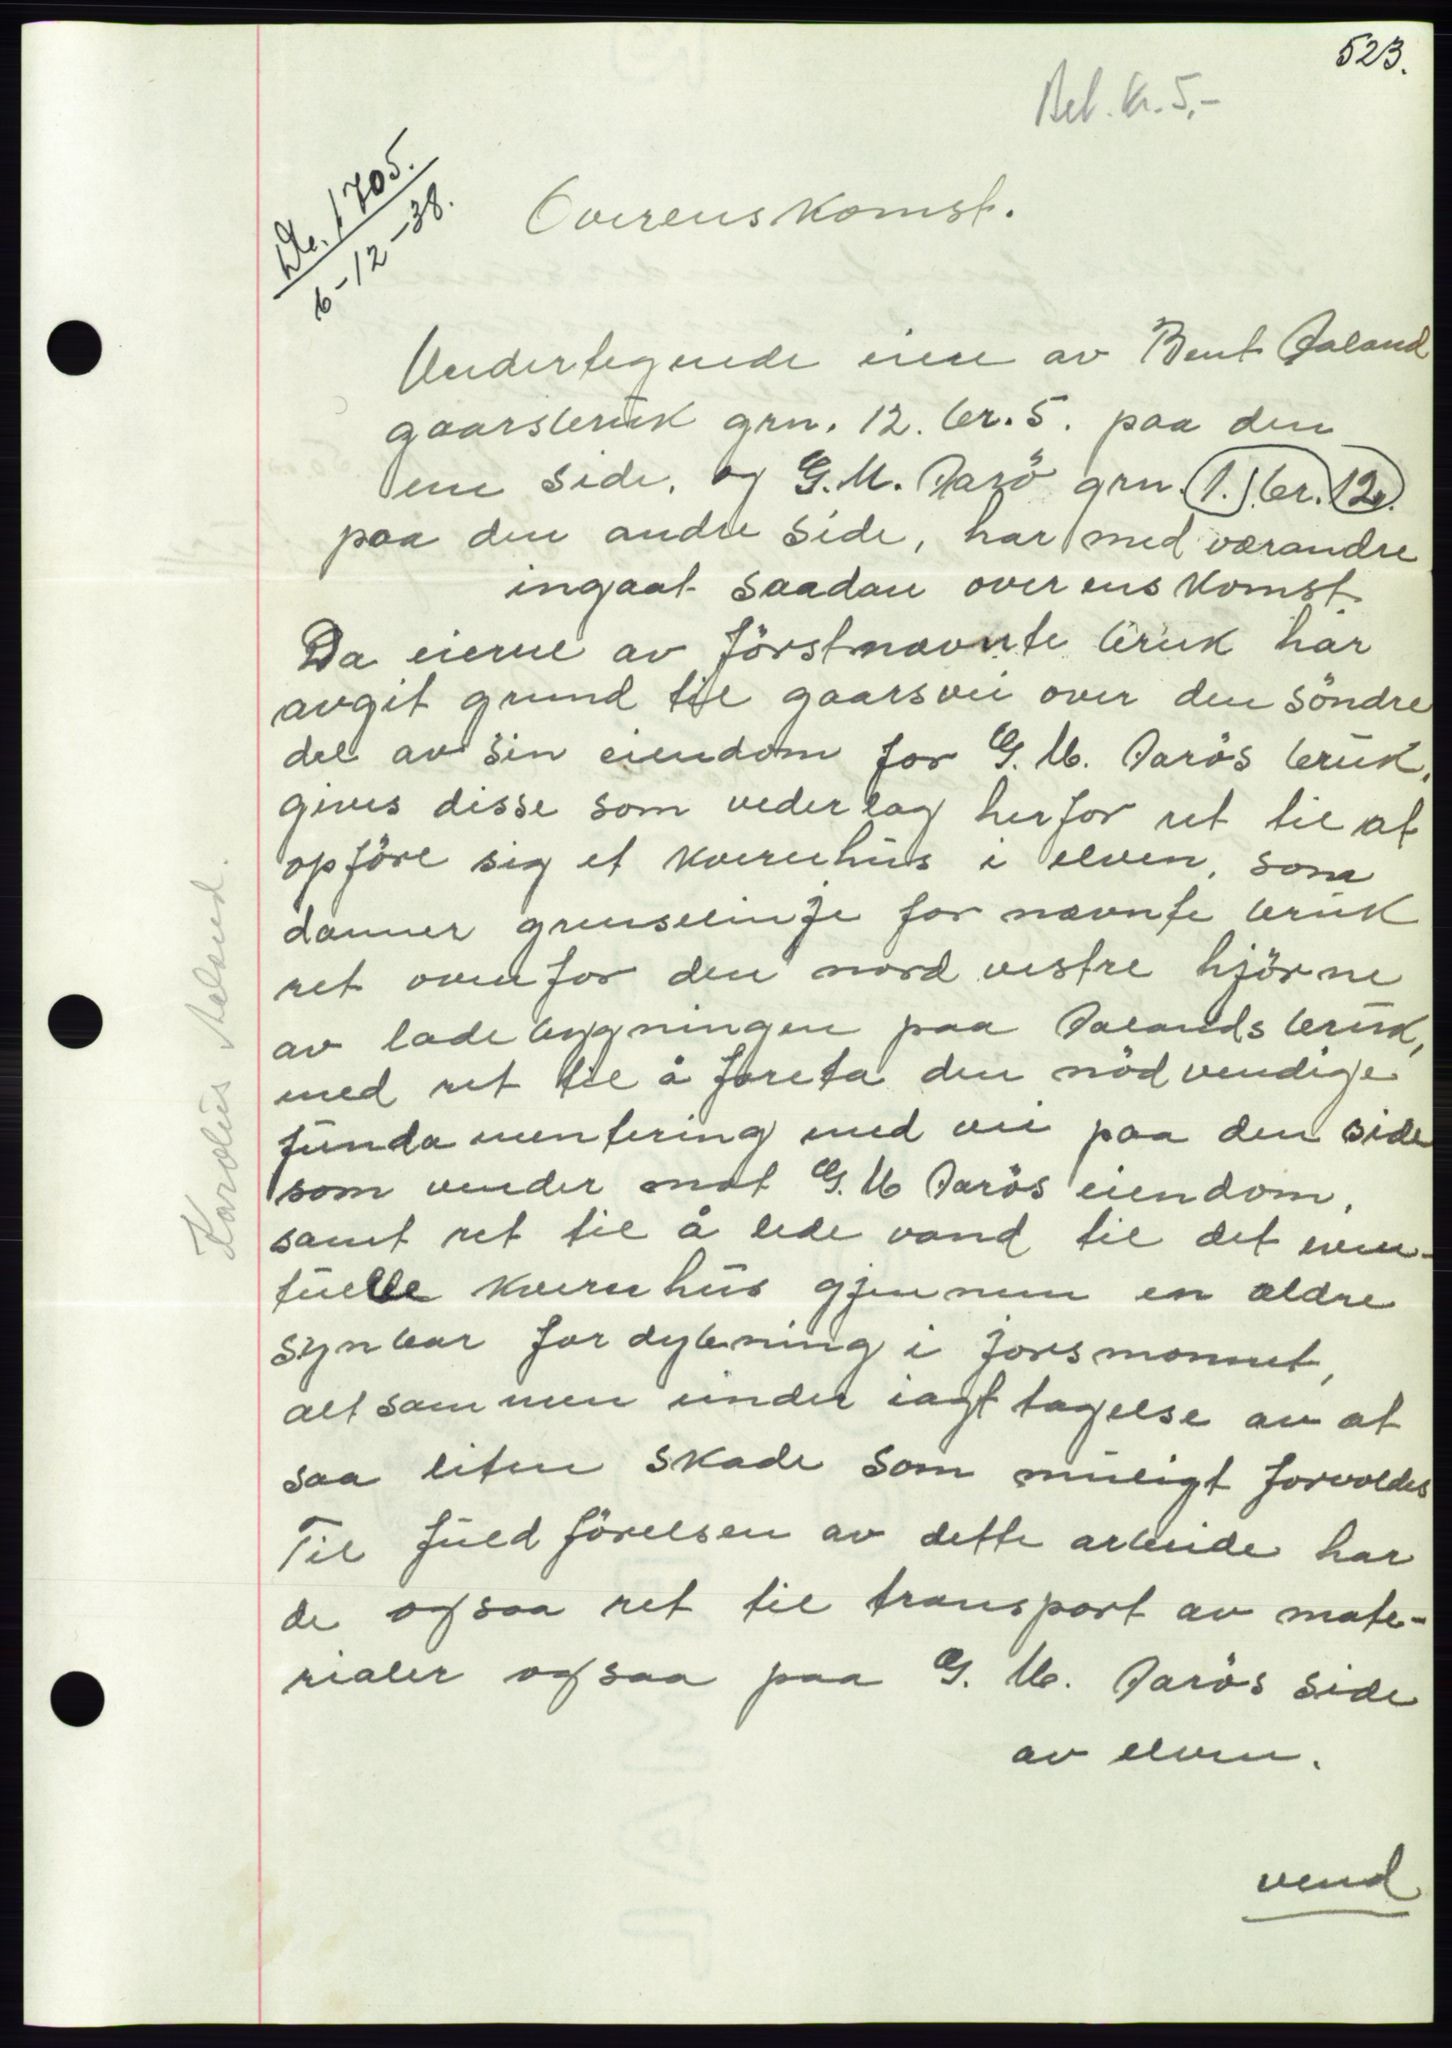 523.
Bet. kr. 5,-
De. 1705.
6-12-38.
Overenskomst.
Undertegnede eiere av Bent Aaland
gaarsbruk grn. 12. br. 5. paa den
ene side, og G. M. Aarö grn. 1. br. 12.
paa den andre side, har med værandre
ingaat saadan overenskomst.
Da eierne av förstnævnte bruk har
avgit grund til gaarsvei over den söndre
del av sin eiendom for G. M. Aarös bruk,
gives disse som vederlag herfor ret til at
opföre sig et kvernhus i elven, som
danner grenselinje for nævnte bruk
ret ovenfor den nord vestre hjörne
av ladebygningen paa Aalands bruk,
med ret til å foreta den nödvendige
fundamentering med vei paa den side
som vender mot G. M Aarös eiendom,
samt ret til å lede vand til det even-
tuelle kvernhus gjennem en ældre
synbar fordybning i jorsmonnet,
altsammen under iagttagelse av at
saa liten skade som muligt forvoldes
Til fuldförelsen av dette arbeide har
de ogsaa ret til transport av mate-
rialer ogsaa paa G. M. Aarös side
av elven.
vend
Karolus Aaland.